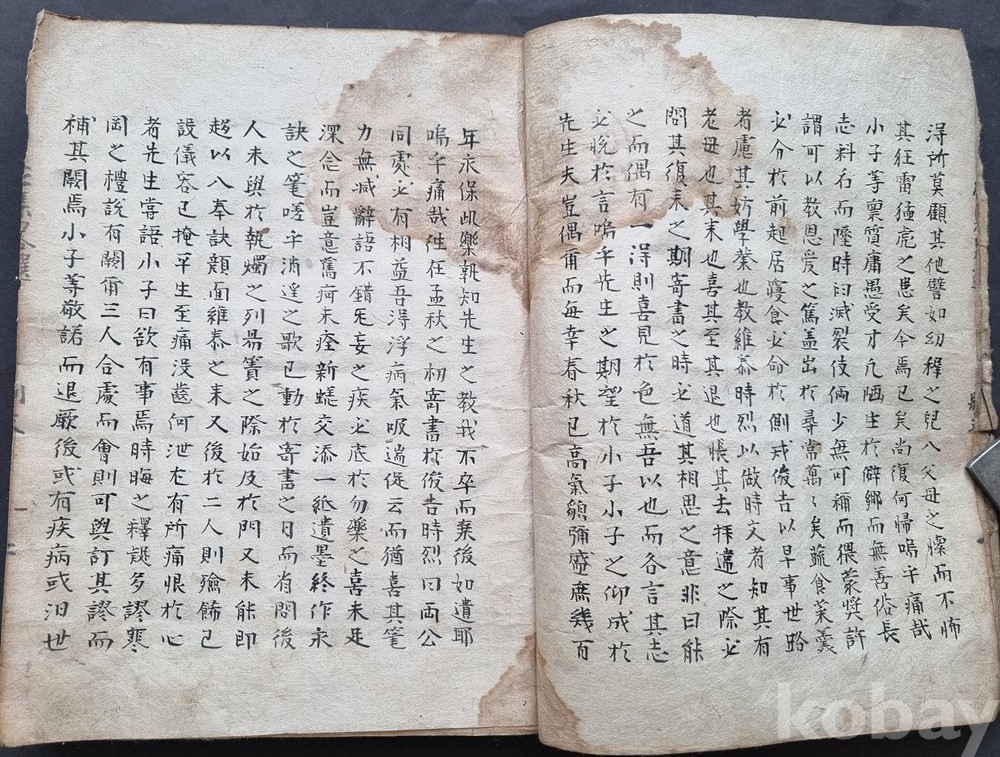 淂所莫顧其他譬如幼穉之兒入父母之懷而不怖
其狂雷猛虎之患矣今焉已矣尚復何㷌嗚乎痛哉
小子等稟質庸愚受才凡陋生於僻鄉而無善俗長
志料名而陞時詞減裂伎倆少無可稱而猥蒙奬許
謂可以教恩愛之篤盖出於尋常萬〻矣蔬食菜羹
必分於前起居寢食必命於側戒俊吉以早事世路
者慮其妨學業也教維泰時烈以做時文者知其有
老母也其来也喜其至其退也悵其去拜違之際必
問其復来之期寄書之時必道其相思之意非曰能
之而偶有一淂則喜見於色無吾以也而各言其志
必悅於言嗚乎先生之期望於小子小子之仰成於
先生夫豈偶甭而每幸春秋已高氣貌彌盛庶幾百
年永保凱樂孰知先生之教我不卒而棄後如遺耶
嗚乎痛哉徃在孟秋之初寄書於俊吉時烈曰両公
同處必有相益吾淂浮病氣吸喘促云而猶喜其筆
力無减辭語不錯旡妄之疾必底於勿藥之喜未足
深念而豈意舊痾未痊新蜣交添一紙遺墨終作永
訣之筆嗟乎消遥之歌已動於寄書之日而有問後
人未與於執燭之列易簀之際始及於門又未能即
趍以入奉訣顔面維泰之来又後於二人則殮飾已
設儀容已掩平生至痛沒齒何泄尤有所痛恨於心
者先生甞語小子曰欲有事焉時晦之釋疑多謬寒
岡之禮說有闕甭三人合處而會則可與訂其謬而
補其闕焉小子等敬諾而退厥後或有疾病或汨世
kobay